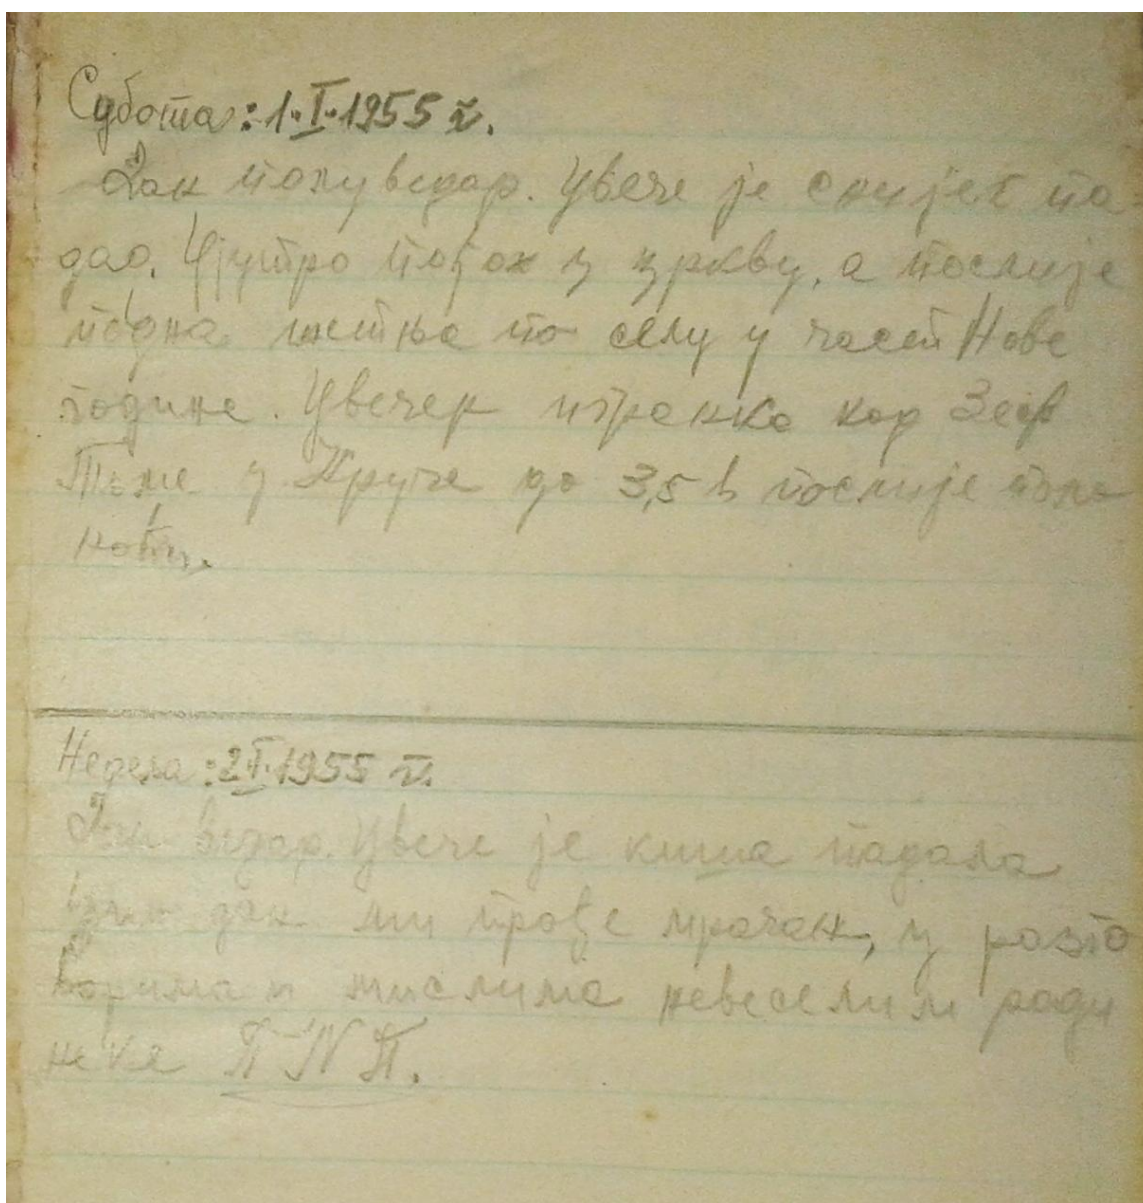 Субота: 1.I.1955 г.
Дан полуведар. Увече је снијег па
дао. Ујутро пођох у цркву, а послије
подна шетња по селу у част Нове
године. Увечер игранка код
у Круче до 3,5 h послије пола
ноћи.
Недеља: 2.I.1955 г.
Дан ведар. Увече је киша падала
дан ми прође мрачан, у разго
ворима и мислима невеселим ради
неке